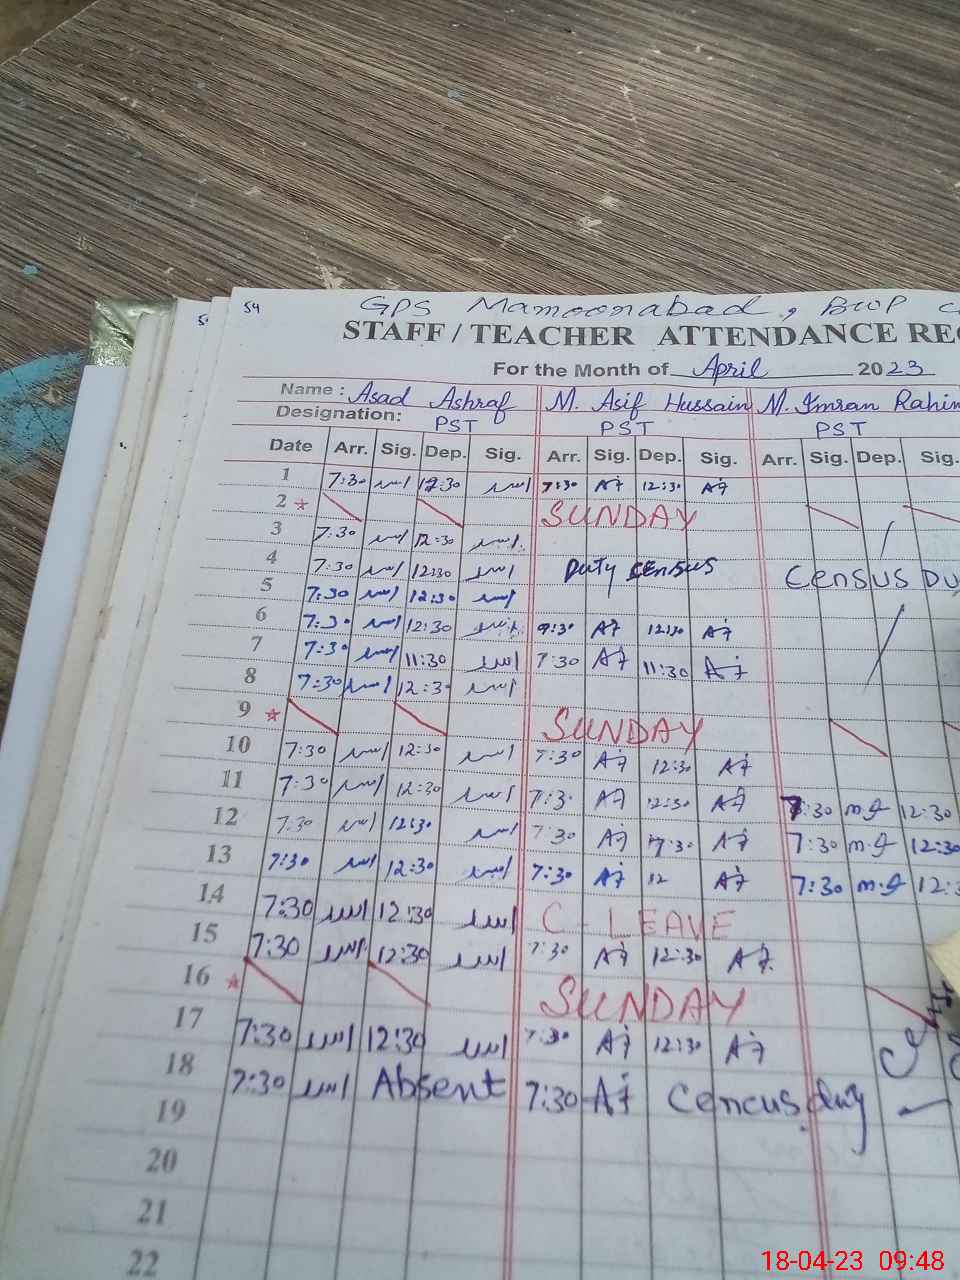 54
GPS Mamoonabad, BWP
STAFF / TEACHER ATTENDANCE
For the Month of April 2023
Name : Asad Ashraf M. Asif Hussain M. Imran Rahim
Designation: PST PST PST
Date Arr. Sig. Dep. Sig. Arr. Sig. Dep. Sig. Arr. Sig. Dep. Sig.
1 7:30 اسد 12:30 اسد 7:30 A7 12:30 A7
2 * SUNDAY
3 7:30 اسد 12:30 اسد
4 7:30 اسد 12:30 اسد Duty census Census
5 7:30 اسد 12:30 اسد
6 7:30 اسد 12:30 اسد 7:30 A7 12:30 A7
7 7:30 اسد 11:30 اسد 7:30 A7 11:30 A7
8 7:30 اسد 12:30 اسد
9 * SUNDAY
10 7:30 اسد 12:30 اسد 7:30 A7 12:30 A7
11 7:30 اسد 12:30 اسد 7:3 A7 12:30 A7 7:30 m.g 12:30
12 7:30 اسد 12:30 اسد 7:30 A7 A7 7:30 m.g 12:30
13 7:30 اسد 12:30 اسد 7:30 A7 12 A7 7:30 m.g 12:3
14 7:30 اسد 12:30 اسد C - LEAVE
15 7:30 اسد 12:30 اسد 7:30 A7 12:30 A7
16 * SUNDAY
17 7:30 اسد 12:30 اسد 7:30 A7 12:30 A7
18 7:30 اسد Absent 7:30 A7 Cencus duty
19
20
21
22
18-04-23 09:48